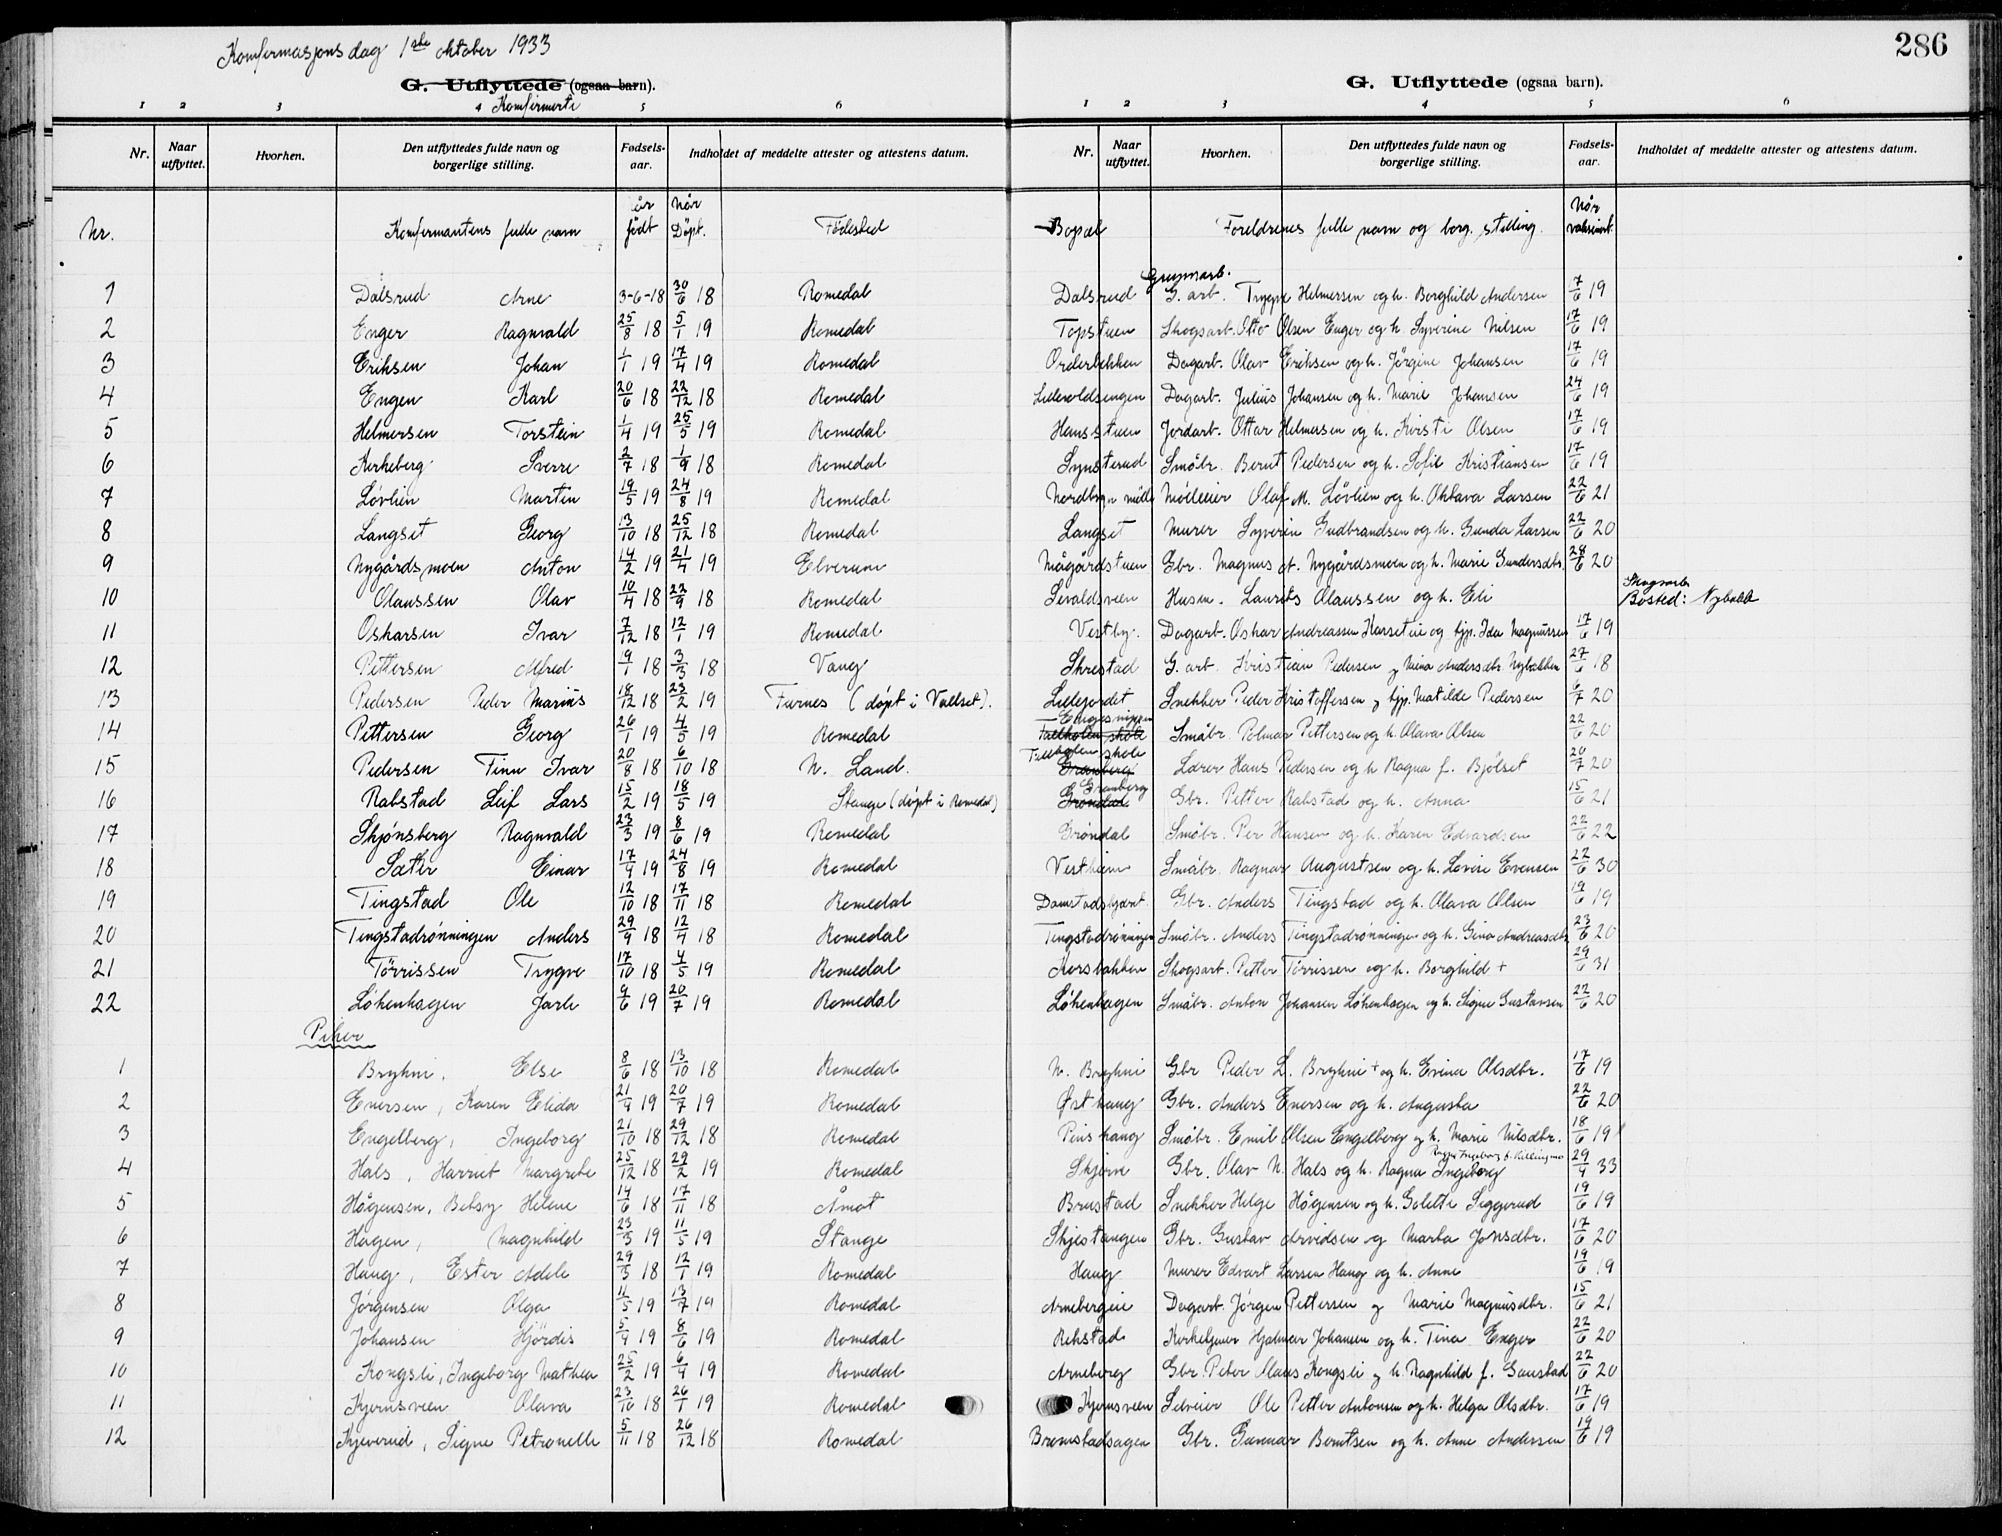 Konfermasjonsdag 1ste oktober 1933
286
G. Utflyttede (ogsaa barn).
Konfirmerte
1 2 3 4 5 6
Nr. Naar utflyttet. Hvorhen. Den utflyttedes fulde navn og borgerlige stilling. Fødsels-aar. Indholdet af meddelte attester og attestens datum.
G. Utflyttede (ogsaa barn).
1 2 3 4 5 6
Nr. Naar utflyttet. Hvorhen. Den utflyttedes fulde navn og borgerlige stilling. Fødsels-aar. Indholdet af meddelte attester og attestens datum.
Nr. Konfermantens fulle navn år født Når Döpt. Födested Bopæl Foreldrenes fulle navn og borg. stilling. Når vaksinert.
1 Dalsrud Arne 3-6-18 30/6 18 Romedal Dalsrud G. arb. Trygve Helmersen og h. Borghild Andersen 17/6 19
2 Enger Ragnvald 25/8 18 5/1 19 Romedal Topstuen Skogsarb. Otto Olsen Enger og h. Syverine Nilsen 17/6 19
3 Eriksen Johan 1/1 19 17/4 19 Romedal Dagarb. Olav Eriksen og h. Jörgine Johansen 17/6 19
4 Engen Karl 20/6 18 22/12 18 Romedal Dagarb. Julius Johansen og h. Marie Johansen 24/6 19
5 Helmersen Torstein 1/4 19 25/5 19 Romedal Hansstuen Jordarb. Ottar Helmersen og h. Kristi Olsen 17/6 19
6 Kirkeberg Sverre 2/7 18 1/9 18 Romedal Synsterud Småbr. Bernt Pedersen og h. Sofie Kristiansen 17/6 19
7 Løvlien Martin 19/5 19 24/8 19 Romedal Nordbyn mölle Mölleeier Olaf M. Løvlien og h. Oktava Larsen 22/6 21
8 Langset Georg 13/10 18 25/12 18 Romedal Langset Murer Syverin Gudbrandsen og h. Gunda Larsen 22/6 20
9 Nygårdsmoen Anton 14/2 19 21/4 19 Elverum Mågårdstuen Gbr. Magnus A. Nygårdsmoen og h. Marie Gundersdbr. 28/6 20
10 Olaussen Olav 10/4 18 22/9 18 Romedal Sevaldsveen Husm. Laurits Olaussen og h. Eli Skogsarb. Bosted: Nybakk
11 Oskarsen Ivar 7/12 18 12/1 19 Romedal Vestby. Dagarb. Oskar Andreassen Karseteie og hjp. Ida Magnussen 17/6 19
12 Pettersen Alfred 19/1 18 3/3 18 Vang Skrestad G. arb. Kristian Pedersen og Mina Andersdbr. Nybakken 27/6 18
13 Pedersen Peder Marius 18/12 18 23/2 19 Furnes (döpt i Vallset). Lillejordet Snekker Peder Kristoffersen og hjp. Matilde Pedersen 6/7 20
14 Pettersen Georg 26/1 19 4/5 19 Romedal Småbr. Polmar Pettersen og h. Olava Olsen 22/6 20
15 Pedersen Finn Ivar 20/8 18 6/10 18 N. Land. skole Granberg Lærer Hans Pedersen og h. Ragna f. Bjölset 20/7 20
16 Rabstad Leif Lars 15/2 19 18/5 19 Stange (döpt i Romedal) Granberg Gröndal Gbr. Petter Rabstad og h. Anna 15/6 21
17 Skjønsberg Ragnvald 23/3 19 8/6 19 Romedal Gröndal Småbr. Per Hansen og h. Karen Edvardsen 22/6 22
18 Sæter Einar 17/4 19 24/8 19 Romedal Vestheim Småbr. Ragnar Augustsen og h. Lovise Evensen 22/6 30
19 Tingstad Ole 12/10 18 17/11 18 Romedal Gbr. Anders Tingstad og h. Olava Olsen 19/6 19
20 Tingstadrönningen Anders 29/9 18 12/4 18 Romedal Tingstadrönningen Småbr. Anders Tingstadrönningen og h. Gina Andreasdbr. 23/6 20
21 Törrissen Trygve 17/10 18 4/5 19 Romedal Korsbakken Skogsarb. Petter Törrissen og h. Borghild + 29/6 31
22 Løkenhagen Jarle 9/6 19 20/7 19 Romedal Løkenhagen Småbr. Anton Johansen Løkenhagen og h. Signe Gustavsen 22/6 20
Piker
1 Bryhni, Else 8/6 18 13/10 18 Romedal N. Bryhni Gbr Peder L. Bryhni + og h. Evina Olsdbr. 17/6 19
2 Enersen, Karen Elida 21/4 19 20/7 19 Romedal Østhaug Gbr. Anders Enersen og h. Augusta 22/6 20
3 Engelberg, Ingeborg 21/10 18 29/12 18 Romedal Pinshaug Småbr. Emil Olsen Engelberg og h. Marie Nilsdbr. 18/6 19
4 Hals, Harriet Margrete 25/12 18 29/2 19 Romedal Skjerve Gbr. Olav N. Hals og h. Ragna Ingeborg 29/4 33
5 Högensen, Betsy Helene 14/6 18 17/11 18 Åmot Brustad Snekker Helge Högensen og h. Golette Seggerud 19/6 19
6 Hagen, Magnhild 23/3 19 11/5 19 Stange Skjestangen Gbr. Gustav Arvidsen og Marta Jonsdbr. 17/6 20
7 Haug, Ester Adele 29/3 18 12/1 19 Romedal Haug Murer Edvart Larsen Haug og h. Anne 19/6 19
8 Jørgensen Olga 11/5 19 13/7 19 Romedal Arnebergeie Dagarb. Jörgen Pettersen og Marie Magnusdbr. 15/6 21
9 Johansen Hjördis 5/4 19 8/6 19 Romedal Rekstad Kirketjener Hjalmar Johansen og h. Tina Enger 22/6 20
10 Kongsli, Ingeborg Mathea 25/2 19 6/4 19 Romedal Arneberg Gbr. Peter Olaus Kongsli og h. Ragnhild f. Gaustad 22/6 20
11 Kjernsveen Olava 23/10 18 26/1 19 Romedal Kjernsveen Selveier Ole Petter Antonsen og h. Helga Olsdbr. 17/6 19
12 Kjeverud, Signe Petronelle 5/11 18 26/12 18 Romedal Bremstadsagen Gbr. Gunnar Berntsen og h. Anne Andersen 19/6 19